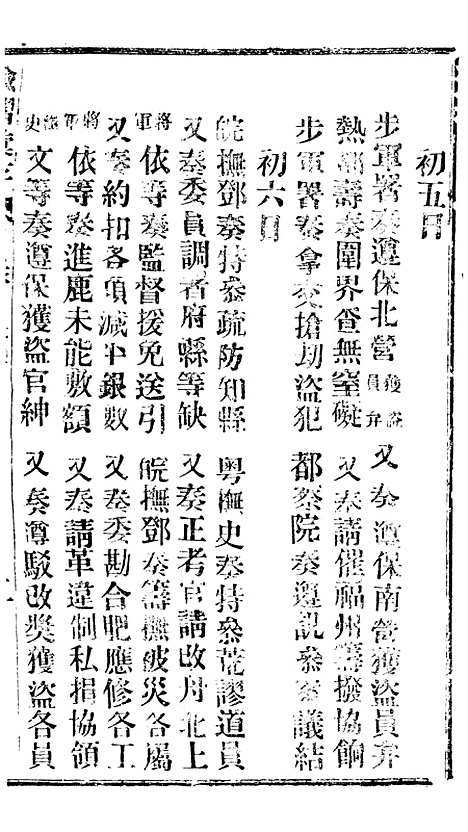 初五日
步軍署奏遵保北營獲盜員弁
又奏遵保南營獲盜員弁
熱都壽奏圍界查無窒礙
又奏請催福州籌撥協餉
步軍署奏拿交搶刼盜犯
都察院奏遵說參案議結
初六日
皖撫鄧奏特參疏防知縣
粤撫史奏特參荒謬道員
又奏委員調署府縣等缺
又奏正考官請改丹北上
將軍依等奏監督援免送引
皖撫鄧奏籌撫被災各屬
又奏約扣各項減平銀數
又奏委勘合肥應修各工
將軍依等奏進鹿未能敷額
又奏請革違制私捐協領
史文等奏遵保獲盜官紳
又奏遵駁改獎獲盜各員